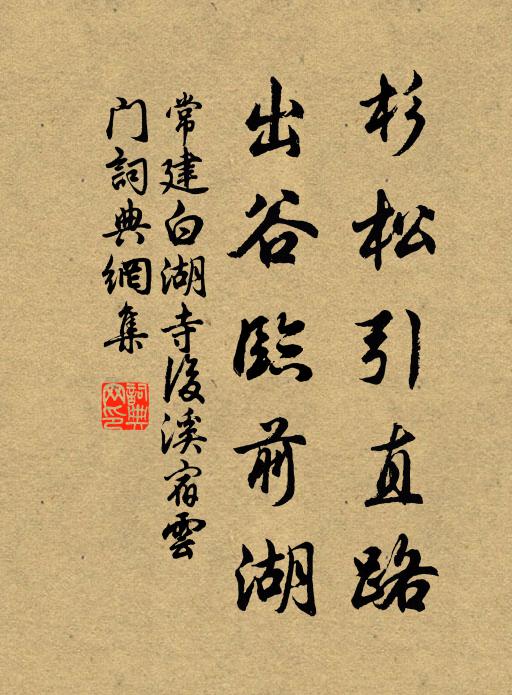 杉松引直路
出谷臨前湖
常建白湖寺後溪宿雲
門詞典網集
詞典网印